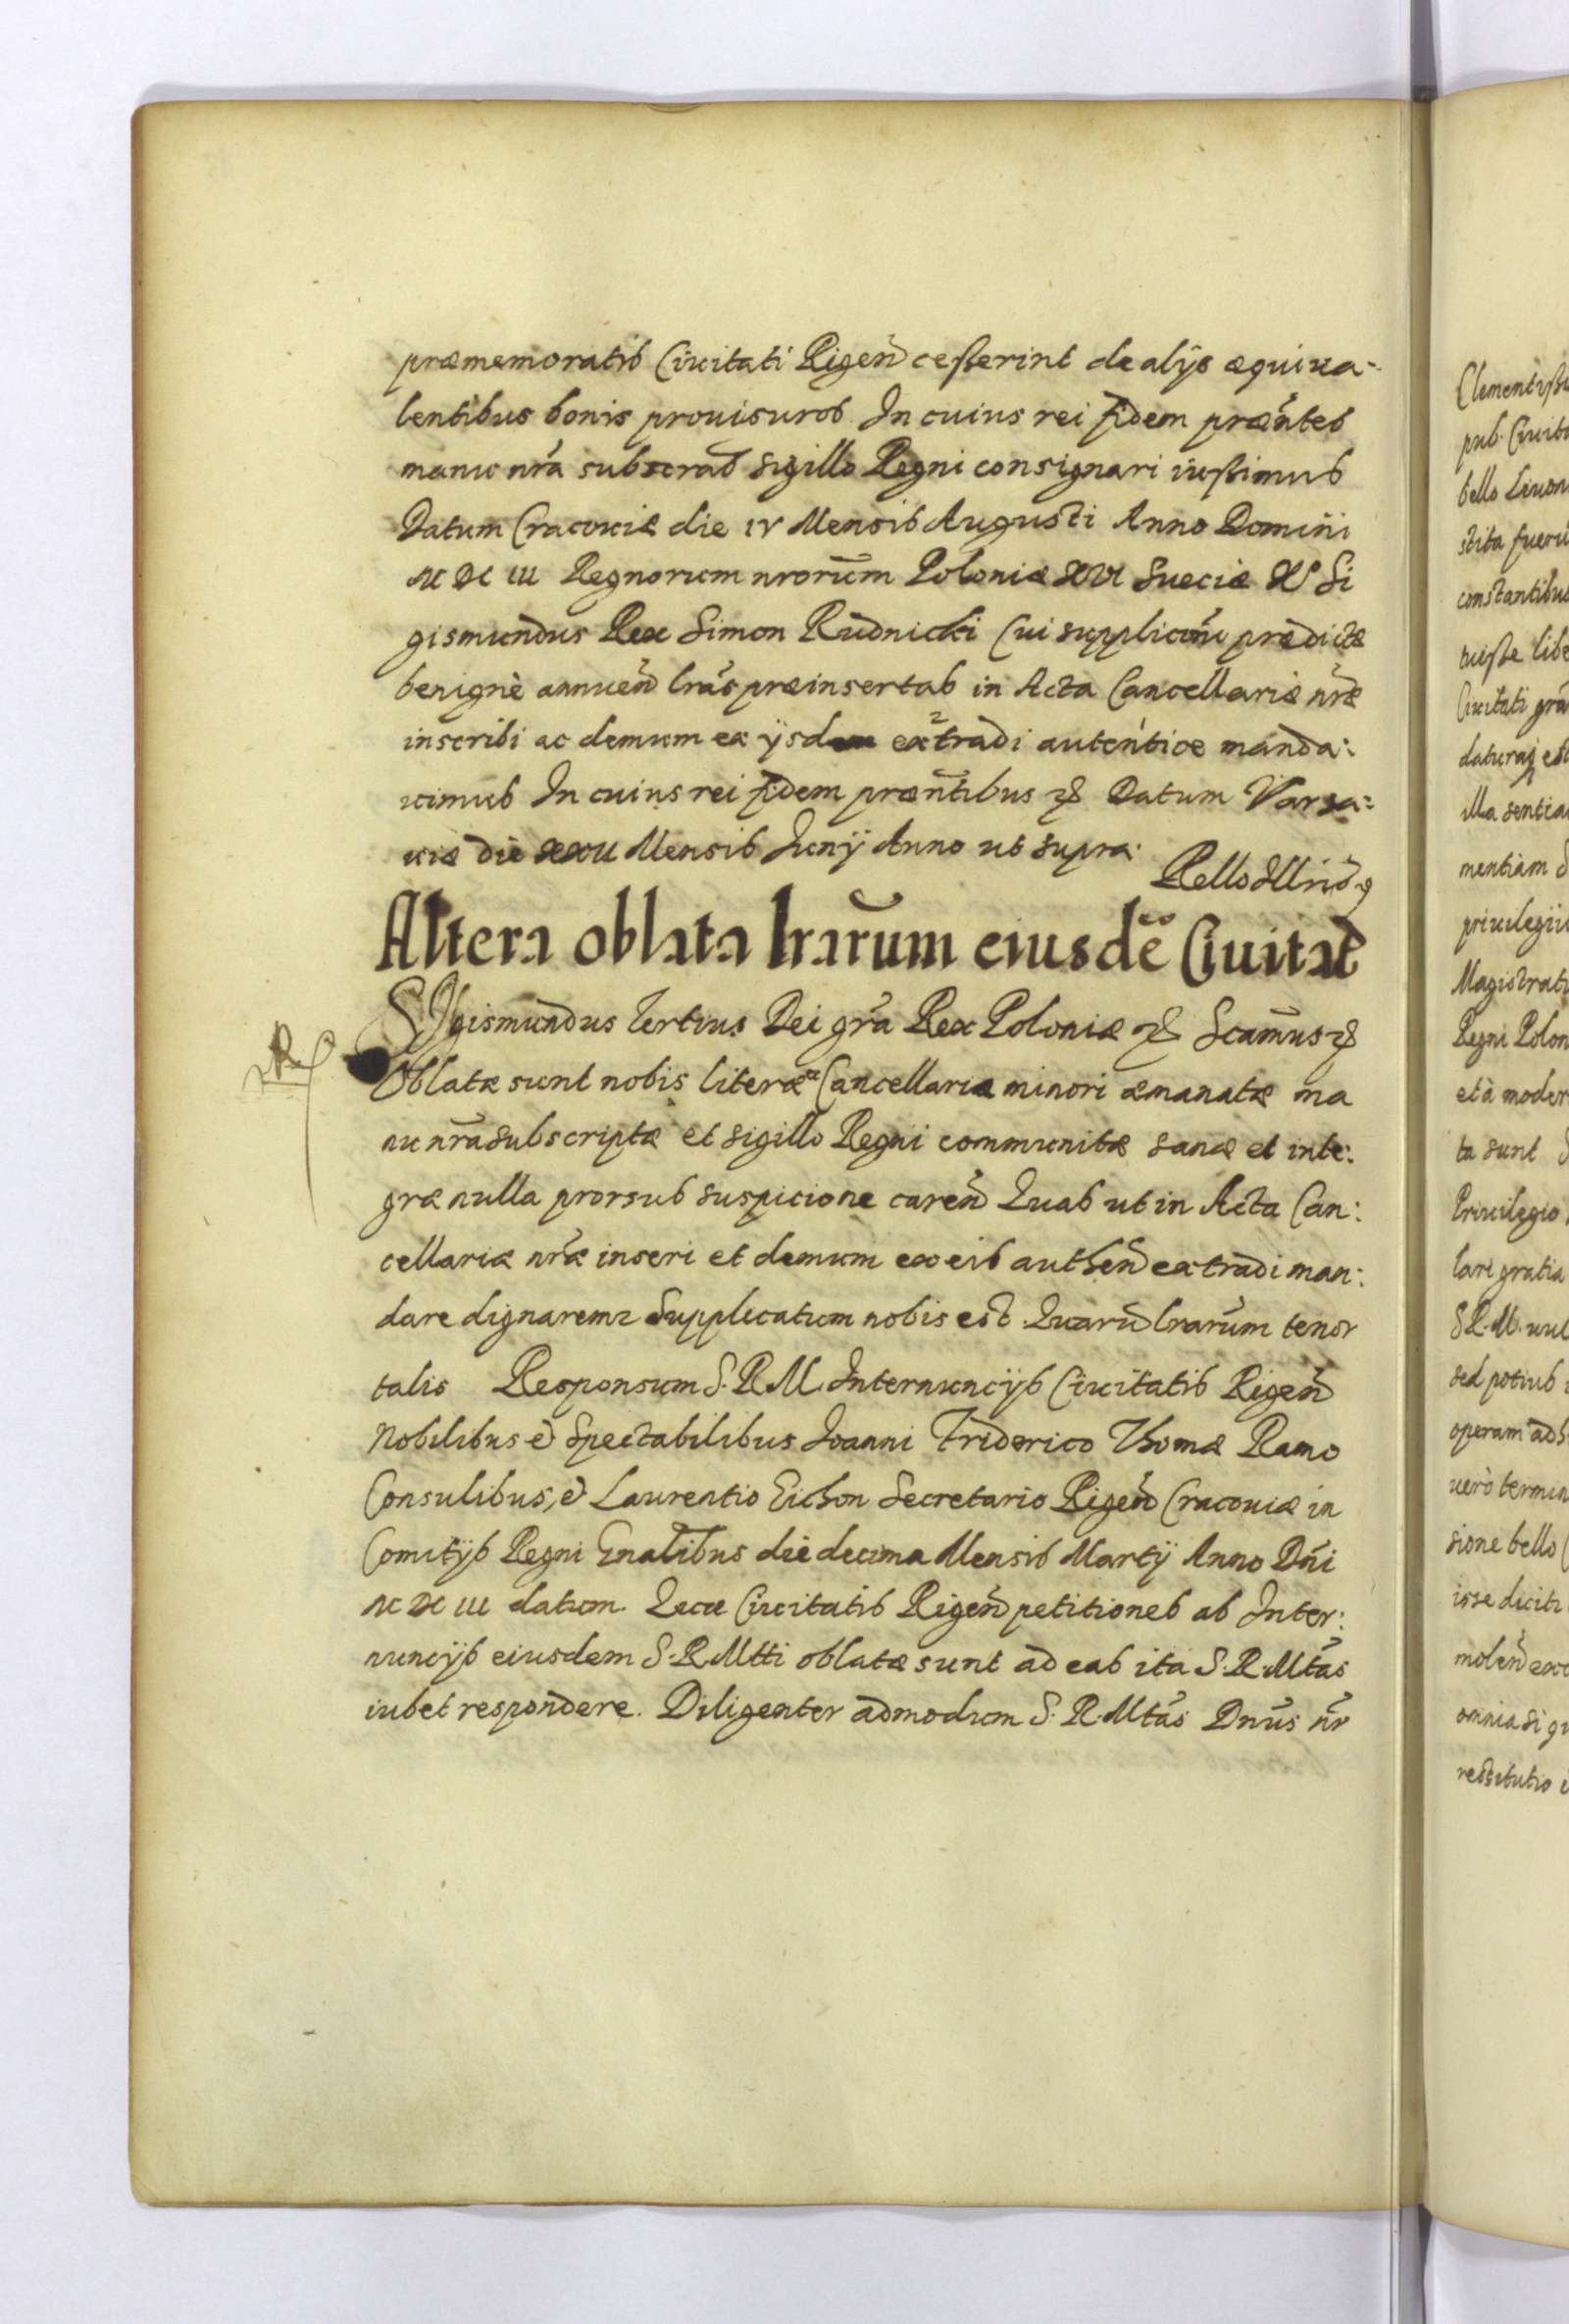 præmemoratis Ciuitati Rigen̄ cesserint de alijs æquiua-
lentibus bonis prouisuros. In cuius rei fidem præn̄tes
manu nr̄a subscrat̄ sigillo Regni consignari iussimus
Datum Cracouiæ die IV Mensis Augusti Anno Domini
MDCIII Regnorum nrorum̄ Poloniæ XVI Sueciæ X° Si
gismundus Rex Simon Rudnicki Cui supplicōni prædictæ
benignè annuen̄ lrās præinsertas in Acta Cancellariæ nr̄æ
inscribi ac demum ex ijsdem extradi auten̄tice manda:
uimus In cuius rei fidem præn̄tibus etc Datum Varsa:
uiæ die Mensis Iunij Anno ut supra.
Altera oblata lrarum̄ eiusdē Ciuitat̄
SIgismundus Tertius Dei gr̄a Rex Poloniæ etc
Oblatæ sunt nobis literæ ex Cancellaria minori æmanatæ ma
nu nr̄a subscriptæ et sigillo Regni communitæ sanæ et inte:
græ nulla prorsus suspicione caren̄ Quas ut in Acta Can:
cellariæ nr̄æ inseri et demum ex eis authen̄ extradi man:
dare dignaremr Supplicatum nobis est. Quarū lrarum̄ tenor
talis Responsum S. R. M. Internuncijs Ciuitatis Rigen̄
Nobilibus et Spectabilibus Ioanni Friderico Thomæ Ramo
Consulibus, et Laurentio Eichon Secretario Rigen̄ Cracouiæ in
Comitijs Regni Gnalibus die decima Mensis Martij Anno Dn̄i
MDCIII datum. Quæ Ciuitatis Rigen̄ petitiones ab Inter:
nuncijs eiusdem S. R. Mtti oblatæ sunt ad eas ita S. R. Mtās
iubet respondere. Diligenter admodum S. R. Mtās Dn̄us nr̄
pub. Ciuit
bello Liuon
constantibus
Ciuitati gra
Magistratu
Regni Polon
et à moder
ta sunt
Priuilegio
lari gratia
sed potius
operam adh
sione bello
omnia si qu
restitutio